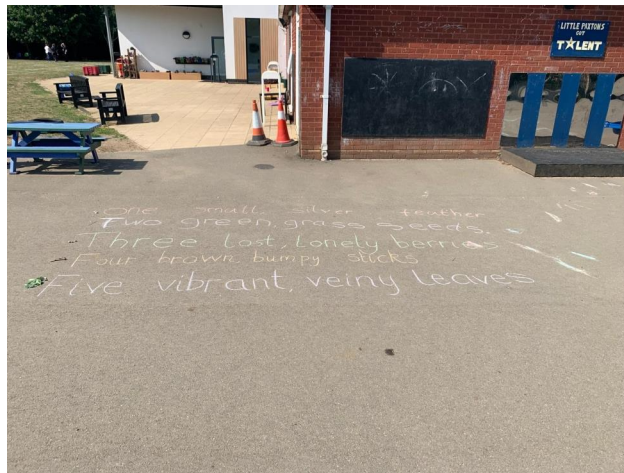 LITTLE PAXTONS
GOT
TALENT
one small, silver feather
Two green, grass seeds,
Three lost, lonely berries
Four brown bumpy sticks
Five vibrant, veiny leaves